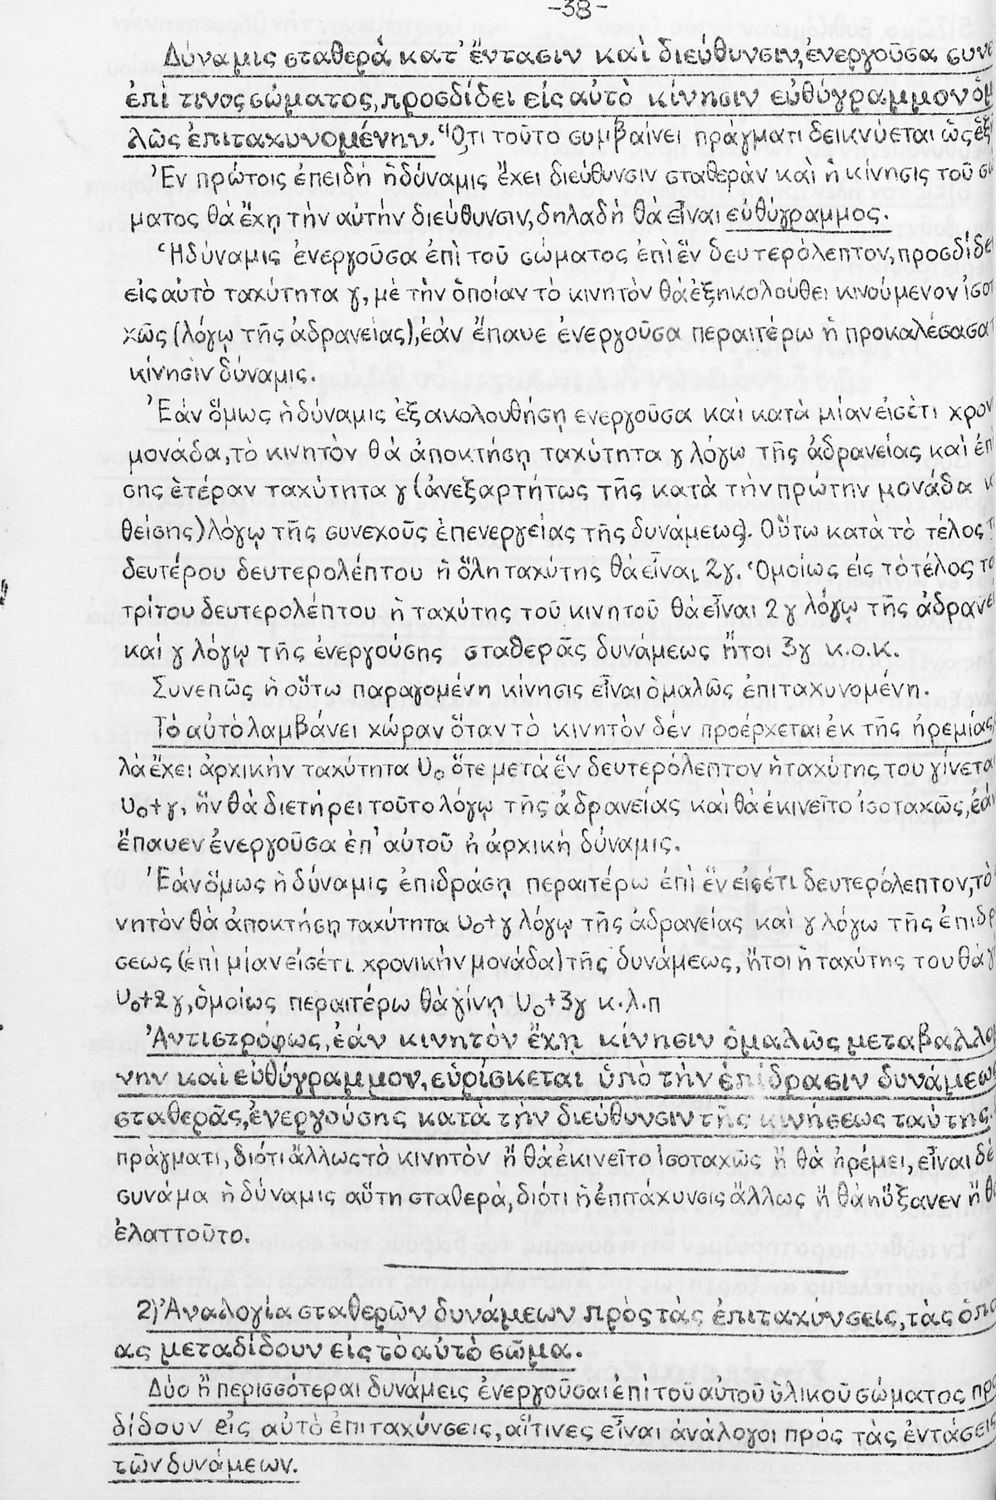 -38-
Δύναμις σταθερὰ κατ' ἔντασιν καὶ διεύθυνσιν, ἐνεργοῦσα συνε
ἐπί τινος σώματος, προσδίδει εἰς αὐτὸ κίνησιν εὐθύγραμμον ὁμ
λῶς ἐπιταχυνομένην. Ὅτι τοῦτο συμβαίνει πράγματι δεικνύεται ὡς ἑξ
Ἐν πρώτοις ἐπειδὴ ἡ δύναμις ἔχει διεύθυνσιν σταθερὰν καὶ ἡ κίνησις τοῦ σώ
ματος θὰ ἔχῃ τὴν αὐτὴν διεύθυνσιν, δηλαδὴ θὰ εἶναι εὐθύγραμμος.
Ἡ δύναμις ἐνεργοῦσα ἐπὶ τοῦ σώματος ἐπὶ ἓν δευτερόλεπτον, προσδίδε
εἰς αὐτὸ ταχύτητα γ, μὲ τὴν ὁποίαν τὸ κινητὸν θὰ ἐξηκολούθει κινούμενον ἰσοτ
χῶς (λόγῳ τῆς ἀδρανείας), ἐὰν ἔπαυε ἐνεργοῦσα περαιτέρω ἡ προκαλέσασα
κίνησιν δύναμις.
Ἐὰν ὅμως ἡ δύναμις ἐξακολουθήσῃ ἐνεργοῦσα καὶ κατὰ μίαν εἰσέτι χρον
μονάδα, τὸ κινητὸν θὰ ἀποκτήσῃ ταχύτητα γ λόγω τῆς ἀδρανείας καὶ ἐπ
σης ἑτέραν ταχύτητα γ (ἀνεξαρτήτως τῆς κατὰ τὴν πρώτην μονάδα κ
θείσης) λόγῳ τῆς συνεχοῦς ἐπενεργείας τῆς δυνάμεως). Οὕτω κατὰ τὸ τέλος τ
δευτέρου δευτερολέπτου ἡ ὅλη ταχύτης θὰ εἶναι 2γ. Ὁμοίως εἰς τὸ τέλος το
τρίτου δευτερολέπτου ἡ ταχύτης τοῦ κινητοῦ θὰ εἶναι 2γ λόγῳ τῆς ἀδρανε
καὶ γ λόγῳ τῆς ἐνεργούσης σταθερᾶς δυνάμεως ἤτοι 3γ κ.ο.κ.
Συνεπῶς ἡ οὕτω παραγομένη κίνησις εἶναι ὁμαλῶς ἐπιταχυνομένη.
Τὸ αὐτὸ λαμβάνει χώραν ὅταν τὸ κινητὸν δὲν προέρχεται ἐκ τῆς ἠρεμίας
λὰ ἔχει ἀρχικὴν ταχύτητα υₒ ὅτε μετὰ ἓν δευτερόλεπτον ἡ ταχύτης του γίνετα
υₒ+γ, ἣν θὰ διετήρει τοῦτο λόγῳ τῆς ἀδρανείας καὶ θὰ ἐκινεῖτο ἰσοταχῶς, ἐὰ
ἔπαυεν ἐνεργοῦσα ἐπ' αὐτοῦ ἡ ἀρχικὴ δύναμις.
Ἐὰν ὅμως ἡ δύναμις ἐπιδράσῃ περαιτέρω ἐπὶ ἓν εἰσέτι δευτερόλεπτον, τὸ
νητὸν θὰ ἀποκτήσῃ ταχύτητα υₒ+γ λόγῳ τῆς ἀδρανείας καὶ γ λόγω τῆς ἐπιδρ
σεως (ἐπὶ μίαν εἰσέτι χρονικὴν μονάδα) τῆς δυνάμεως, ἤτοι ἡ ταχύτης του θὰ γ
υₒ+2γ, ὁμοίως περαιτέρω θὰ γίνῃ υₒ+3γ κ.λ.π
Ἀντιστρόφως, ἐάν κινητὸν ἔχῃ κίνησιν ὁμαλῶς μεταβαλλο
νην καὶ εὐθύγραμμον, εὑρίσκεται ὑπὸ τὴν ἐπίδρασιν δυνάμεω
σταθερᾶς, ἐνεργούσης κατὰ τὴν διεύθυνσιν τῆς κινήσεως ταύτης.
πράγματι, διότι ἄλλως τὸ κινητὸν ἢ θὰ ἐκινεῖτο ἰσοταχῶς ἢ θὰ ἠρέμει, εἶναι δὲ
συνάμα ἡ δύναμις αὕτη σταθερὰ, διότι ἡ ἐπιτάχυνσις ἄλλως ἢ θὰ ηὔξανεν ἢ θ
ἐλαττοῦτο.
2) Ἀναλογία σταθερῶν δυνάμεων πρὸς τὰς ἐπιταχύνσεις, τὰς ὁπο
ας μεταδίδουν εἰς τὸ αὐτὸ σῶμα.
Δύο ἢ περισσότεραι δυνάμεις ἐνεργοῦσαι ἐπὶ τοῦ αὐτοῦ ὑλικοῦ σώματος πρ
δίδουν εἰς αὐτὸ ἐπιταχύνσεις, αἵτινες εἶναι ἀνάλογοι πρὸς τὰς ἐντάσεις
τῶν δυνάμεων.